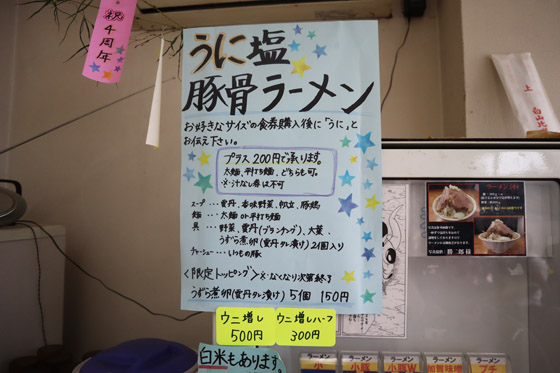 ㊗4周年
うに塩
豚骨ラーメン
お好きなサイズの食券購入後に「うに」と
お伝え下さい。
プラス200円で承ります。
太麺、平打ち麺、どちらも可。
※汁なし券は不可
スープ…雲丹、香味野菜、帆立、豚鶏
麺…太麺or平打ち麺
具…野菜、雲丹(プランチング)、大葉、
うずら煮卵(雲丹タレ漬け)2個入り
チャーシュー…いつもの豚
<限定トッピング>※なくなり次第終了
うずら煮卵(雲丹タレ漬け)5個 150円
ウニ増し
500円
ウニ増しハーフ
300円
白米もあります。
上
白山比
ラーメン(小)
勝二郎様
ラーメン
小
ラーメン
小豚
ラーメン
小豚W
ラーメン
加賀味噌
ラーメン
プチ